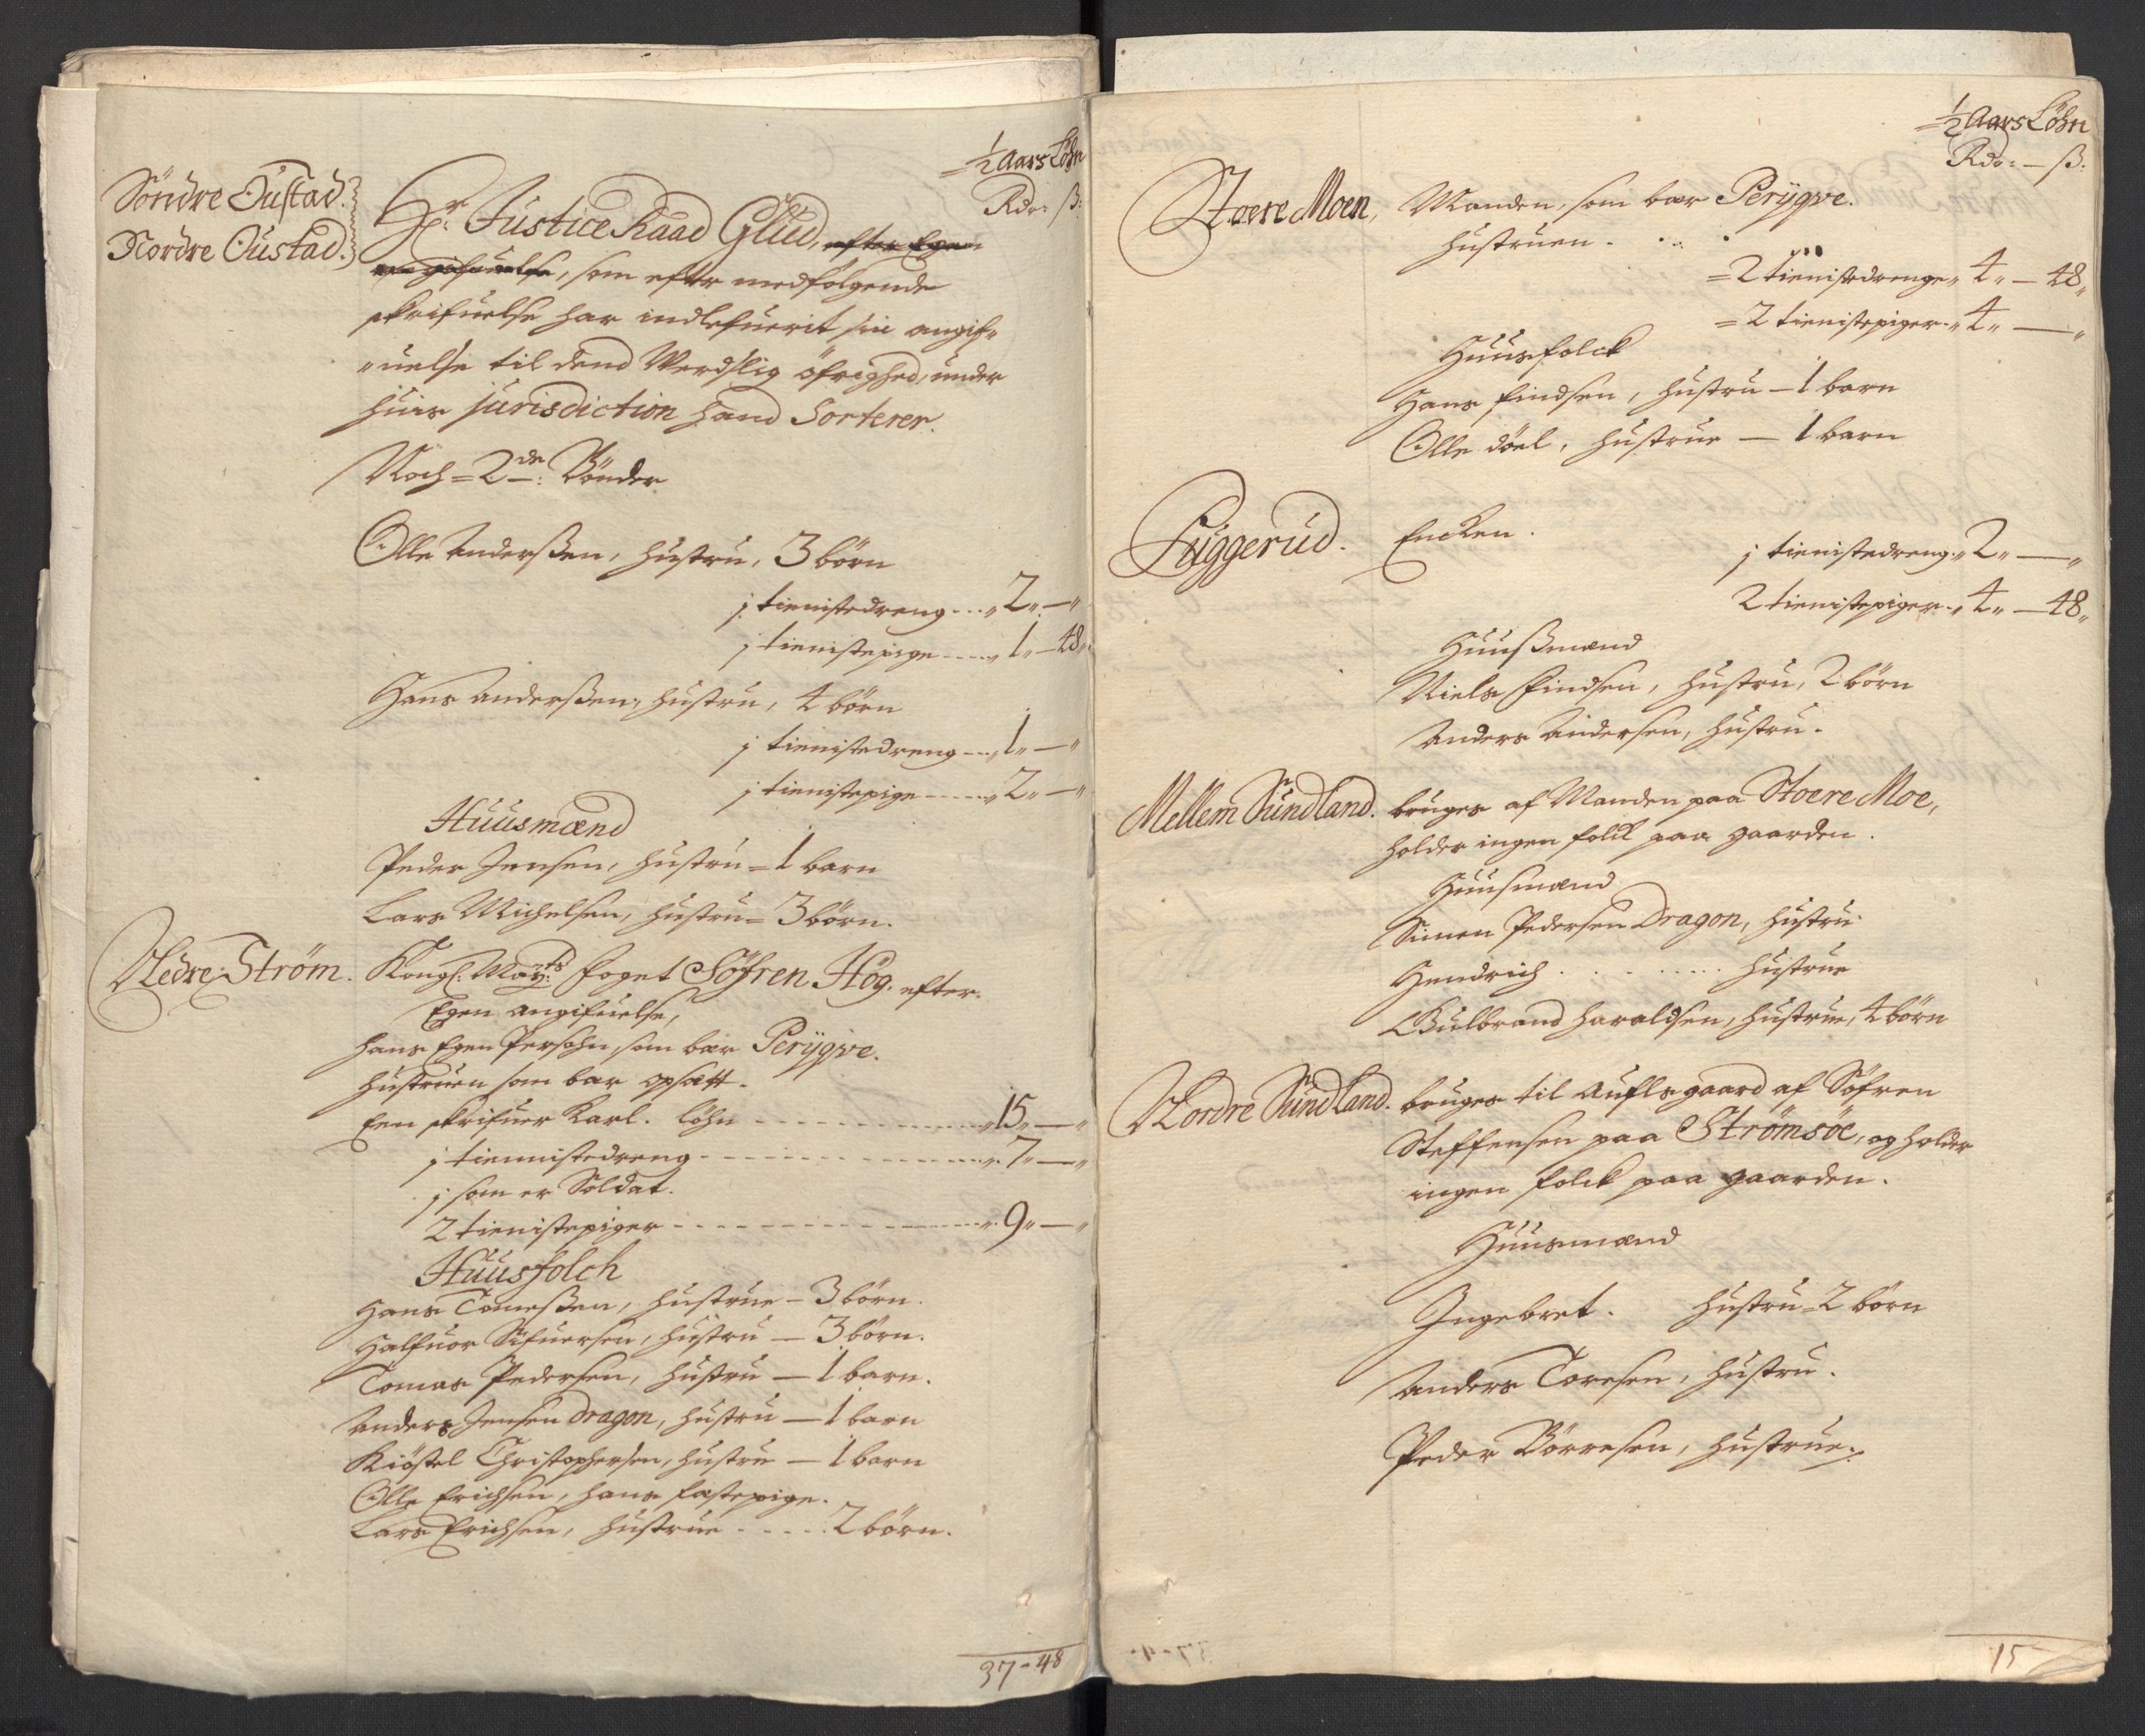 ½ Aars Löhn
Rdr: ß:
Söndre Oustad.
Nordre Oustad.
Hr. Justice Raad Glud, efter Egen
angifvuelse, som efter medfölgende
skrifuelse har indlefuerit sin angif-
"uelse til dend Werdslig öfrighed, under
huis jurisdiction hand Sorterer.
Noch = 2de: Bönder
Olle Anderßen, hustru, 3 börn
j tienistedreng - - - „ 2 „ — „
j tienistepige - - - - „ 1 „ — 48 „
Hans Anderßen, hustru, 4 börn
j tienistedreng - - - „ 1 „ — „
j tienistepige - - - - „ 2 „ — „
Huusmænd
Peder Jensen, hustru = 1 barn
Lars Michelsen, hustru = 3 börn.
Nedre Ström. Kongl: Mayts: foget Söfren Høg. efter
Egen angifuelse,
hans Egen Persohn, som bær Perÿqve.
hustruen som bær opsatt.
Een skrifuer Karl. löhn - - - - - „ 15 „ — „
j tiennistedreng - - - - - „ 7 „ — „
j som er Soldat.
2 tienistepiger - - - - - „ 9 „ — „
Huusfolch
Hans Tomeßen, hustrue – 3 börn.
Halfuor Sifuersen, hustru — 3 börn.
Tomas Pedersen, hustru — 1 barn.
Anders Jensen Dragon, hustru — 1 barn
Kiöstel Christophersen, hustru — 1 barn
Olle Erichsen, hans fæstepige.
Lars Erichsen, hustrue - - - - 2 börn.
37 - 48
½ Aars Löhn
Rdr: — ß:
Stoere Moen, Manden, som bær Perÿqve.
hustruen - . . .
= 2 tienistedrenge „ 4 „ — 48 „
= 2 tienistepiger „ 4 „ — „
Huusfolck
Hans findsen, hustru — 1 barn
Olle döel, hustrue — 1 barn
Luggerud. Encken.
j tienistedreng „ 2 „ — „
2 tienistepiger „ 4 „ — 48 „
Huußmænd
Niels findsen, hustru, 2 börn
Anders Andersen, hustru.
Mellem Sundland. bruges af Manden paa Stoere Moe,
holder ingen folck paa gaarden.
Huusmænd
Simen Pedersen Dragon, hustru
Hendrich . - - . . . . . hustrue
Gulbrand haraldsen, hustrue, 4 börn
Nordre Sundland. bruges til aufls gaard af Söfren
Steffensen paa Strömsöe, og holder
ingen folck paa gaarden.
Huusmænd
Ingebret. hustru = 2 börn
Anders Toresen, hustru.
Peder Börresen, hustrue.
15